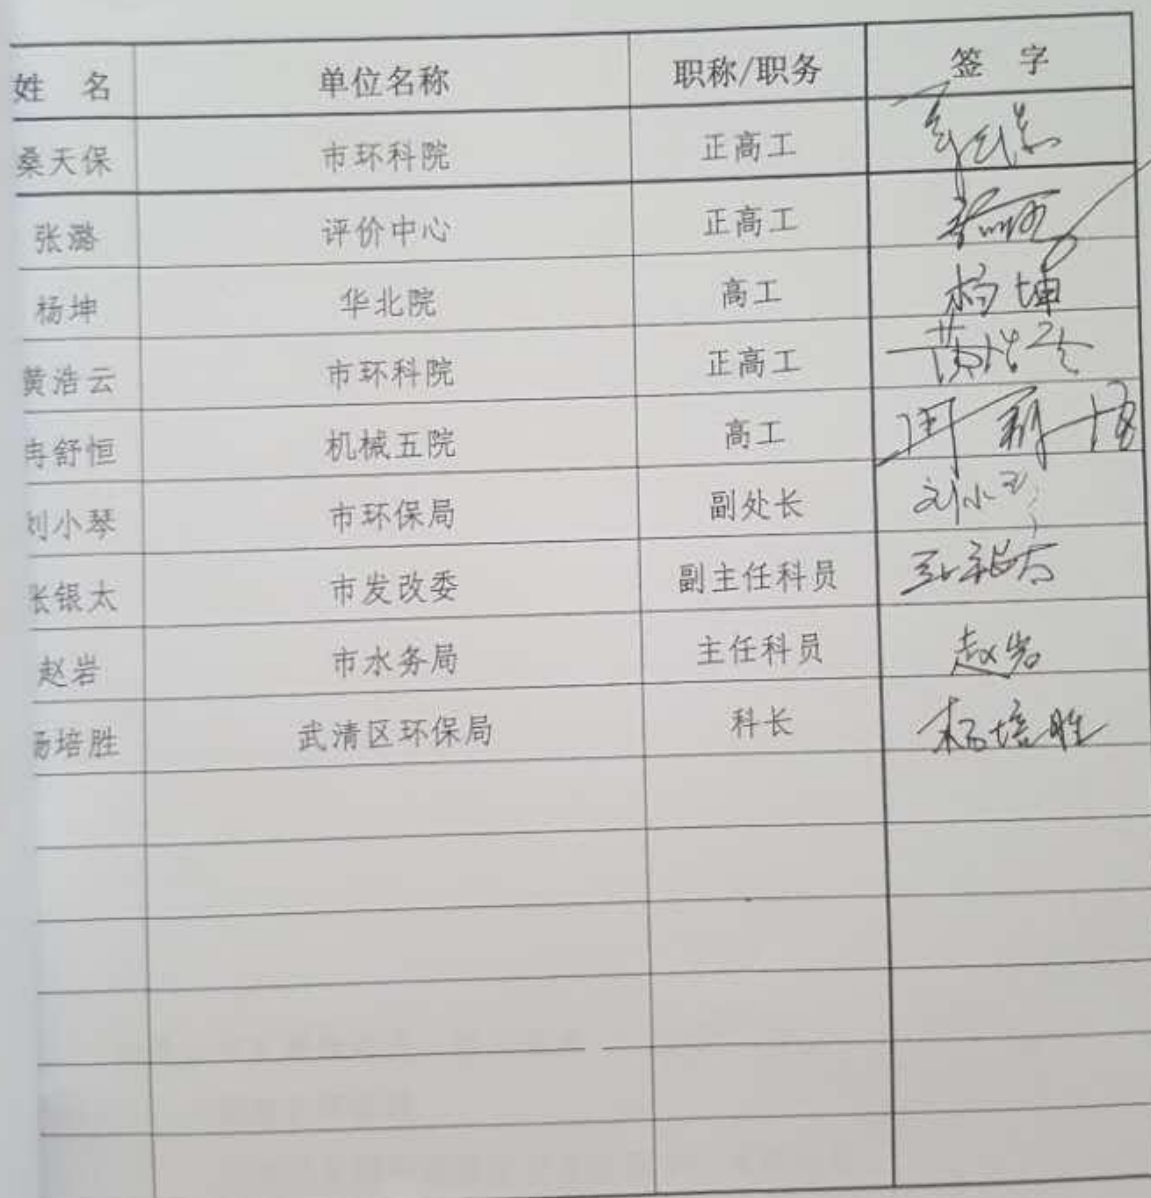 姓 名 单位名称 职称/职务 签 字
桑天保 市环科院 正高工
张潞 评价中心 正高工
杨坤 华北院 高工 杨坤
黄浩云 市环科院 正高工 黄浩云
冉舒恒 机械五院 高工
刘小琴 市环保局 副处长 刘小琴
张银太 市发改委 副主任科员 张银太
赵岩 市水务局 主任科员 赵岩
杨培胜 武清区环保局 科长 杨培胜